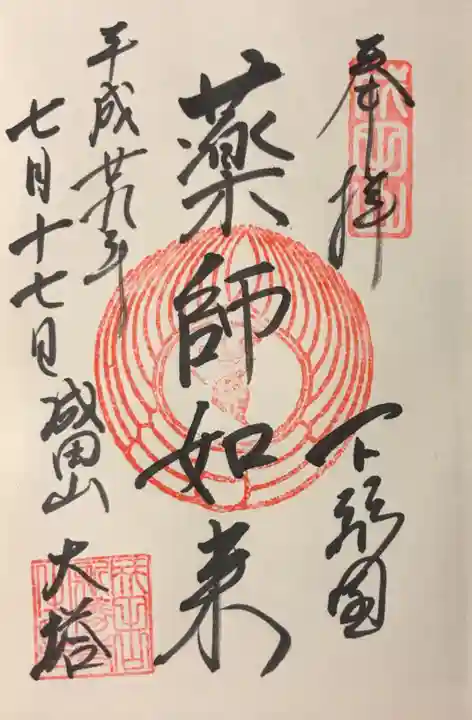 奉拝 下総国
薬師如来
平成廿九年
七月十七日 成田山 大塔